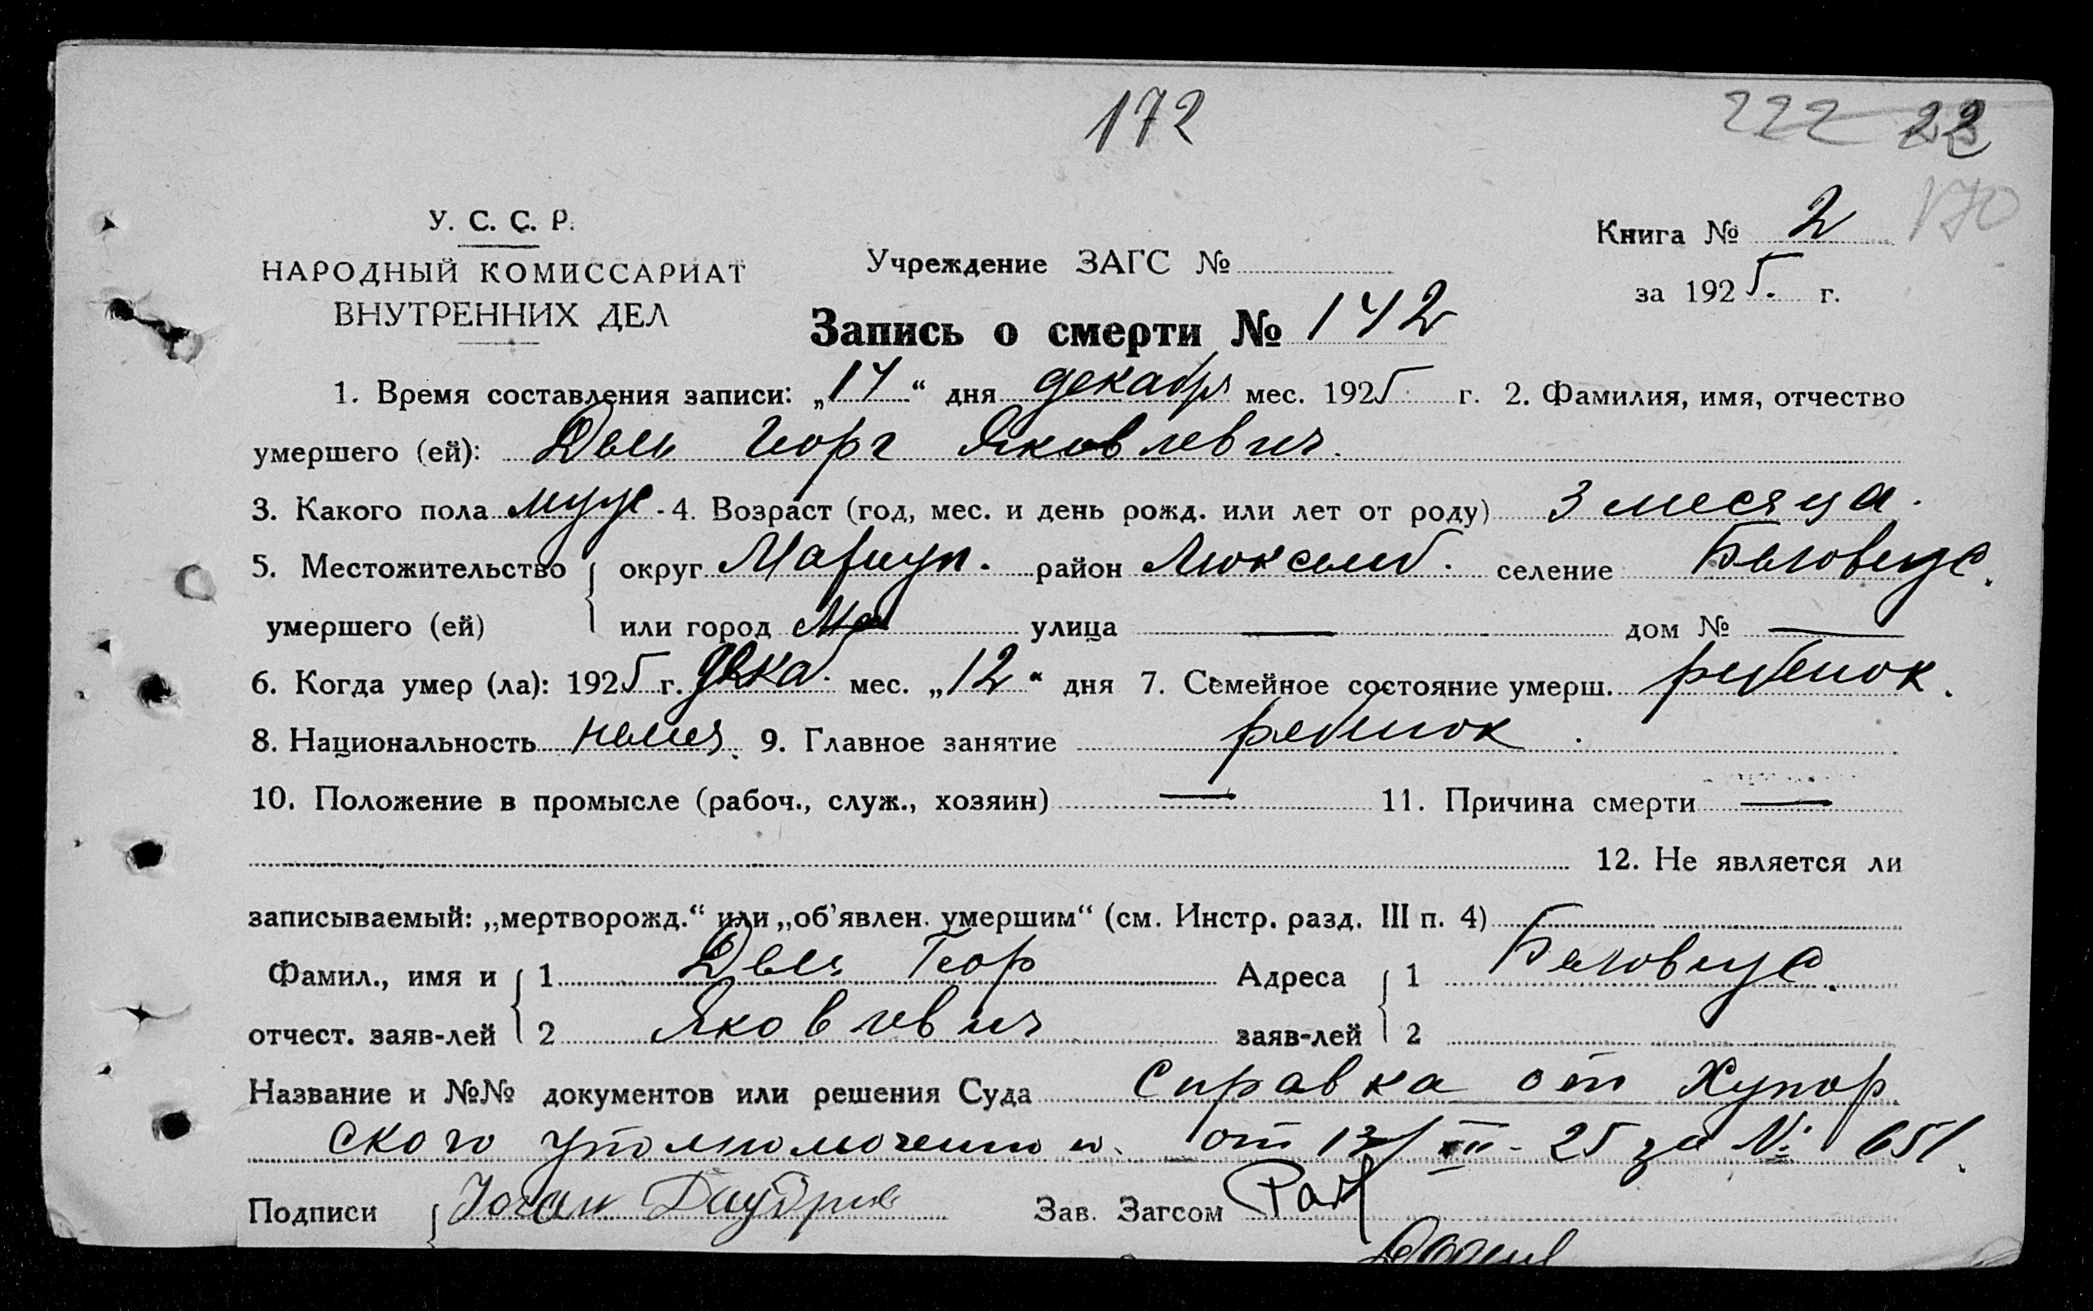 172
222 22
170
У. С. С. Р.
НАРОДНЫЙ КОМИССАРИАТ
ВНУТРЕННИХ ДЕЛ
Учреждение ЗАГС №
Книга № 2
за 1925. г.
Запись о смерти № 142
1. Время составления записи: „14“ дня декабря мес. 1925 г. 2. Фамилия, имя, отчество
умершего (ей): Георг Яковлевич.
3. Какого пола муж. 4. Возраст (год, мес. и день рожд. или лет от роду) 3 месяца.
5. Местожительство округ Мариуп. район Люксемб. селение
умершего (ей) или город улица — дом № —
6. Когда умер (ла): 1925 г. декаб. мес. „12“ дня 7. Семейное состояние умерш. ребенок.
8. Национальность немец. 9. Главное занятие ребенок.
10. Положение в промысле (рабоч., служ., хозяин) — 11. Причина смерти —
12. Не является ли
записываемый: „мертворожд.“ или „об’явлен. умершим“ (см. Инстр. разд. III п. 4)
Фамил., имя и 1 Геор Адреса 1
отчест. заяв-лей 2 Яковлевич заяв-лей 2
Название и №№ документов или решения Суда Справка от Хутор
ского уполномоченно от за № 651.
Подписи Зав. Загсом